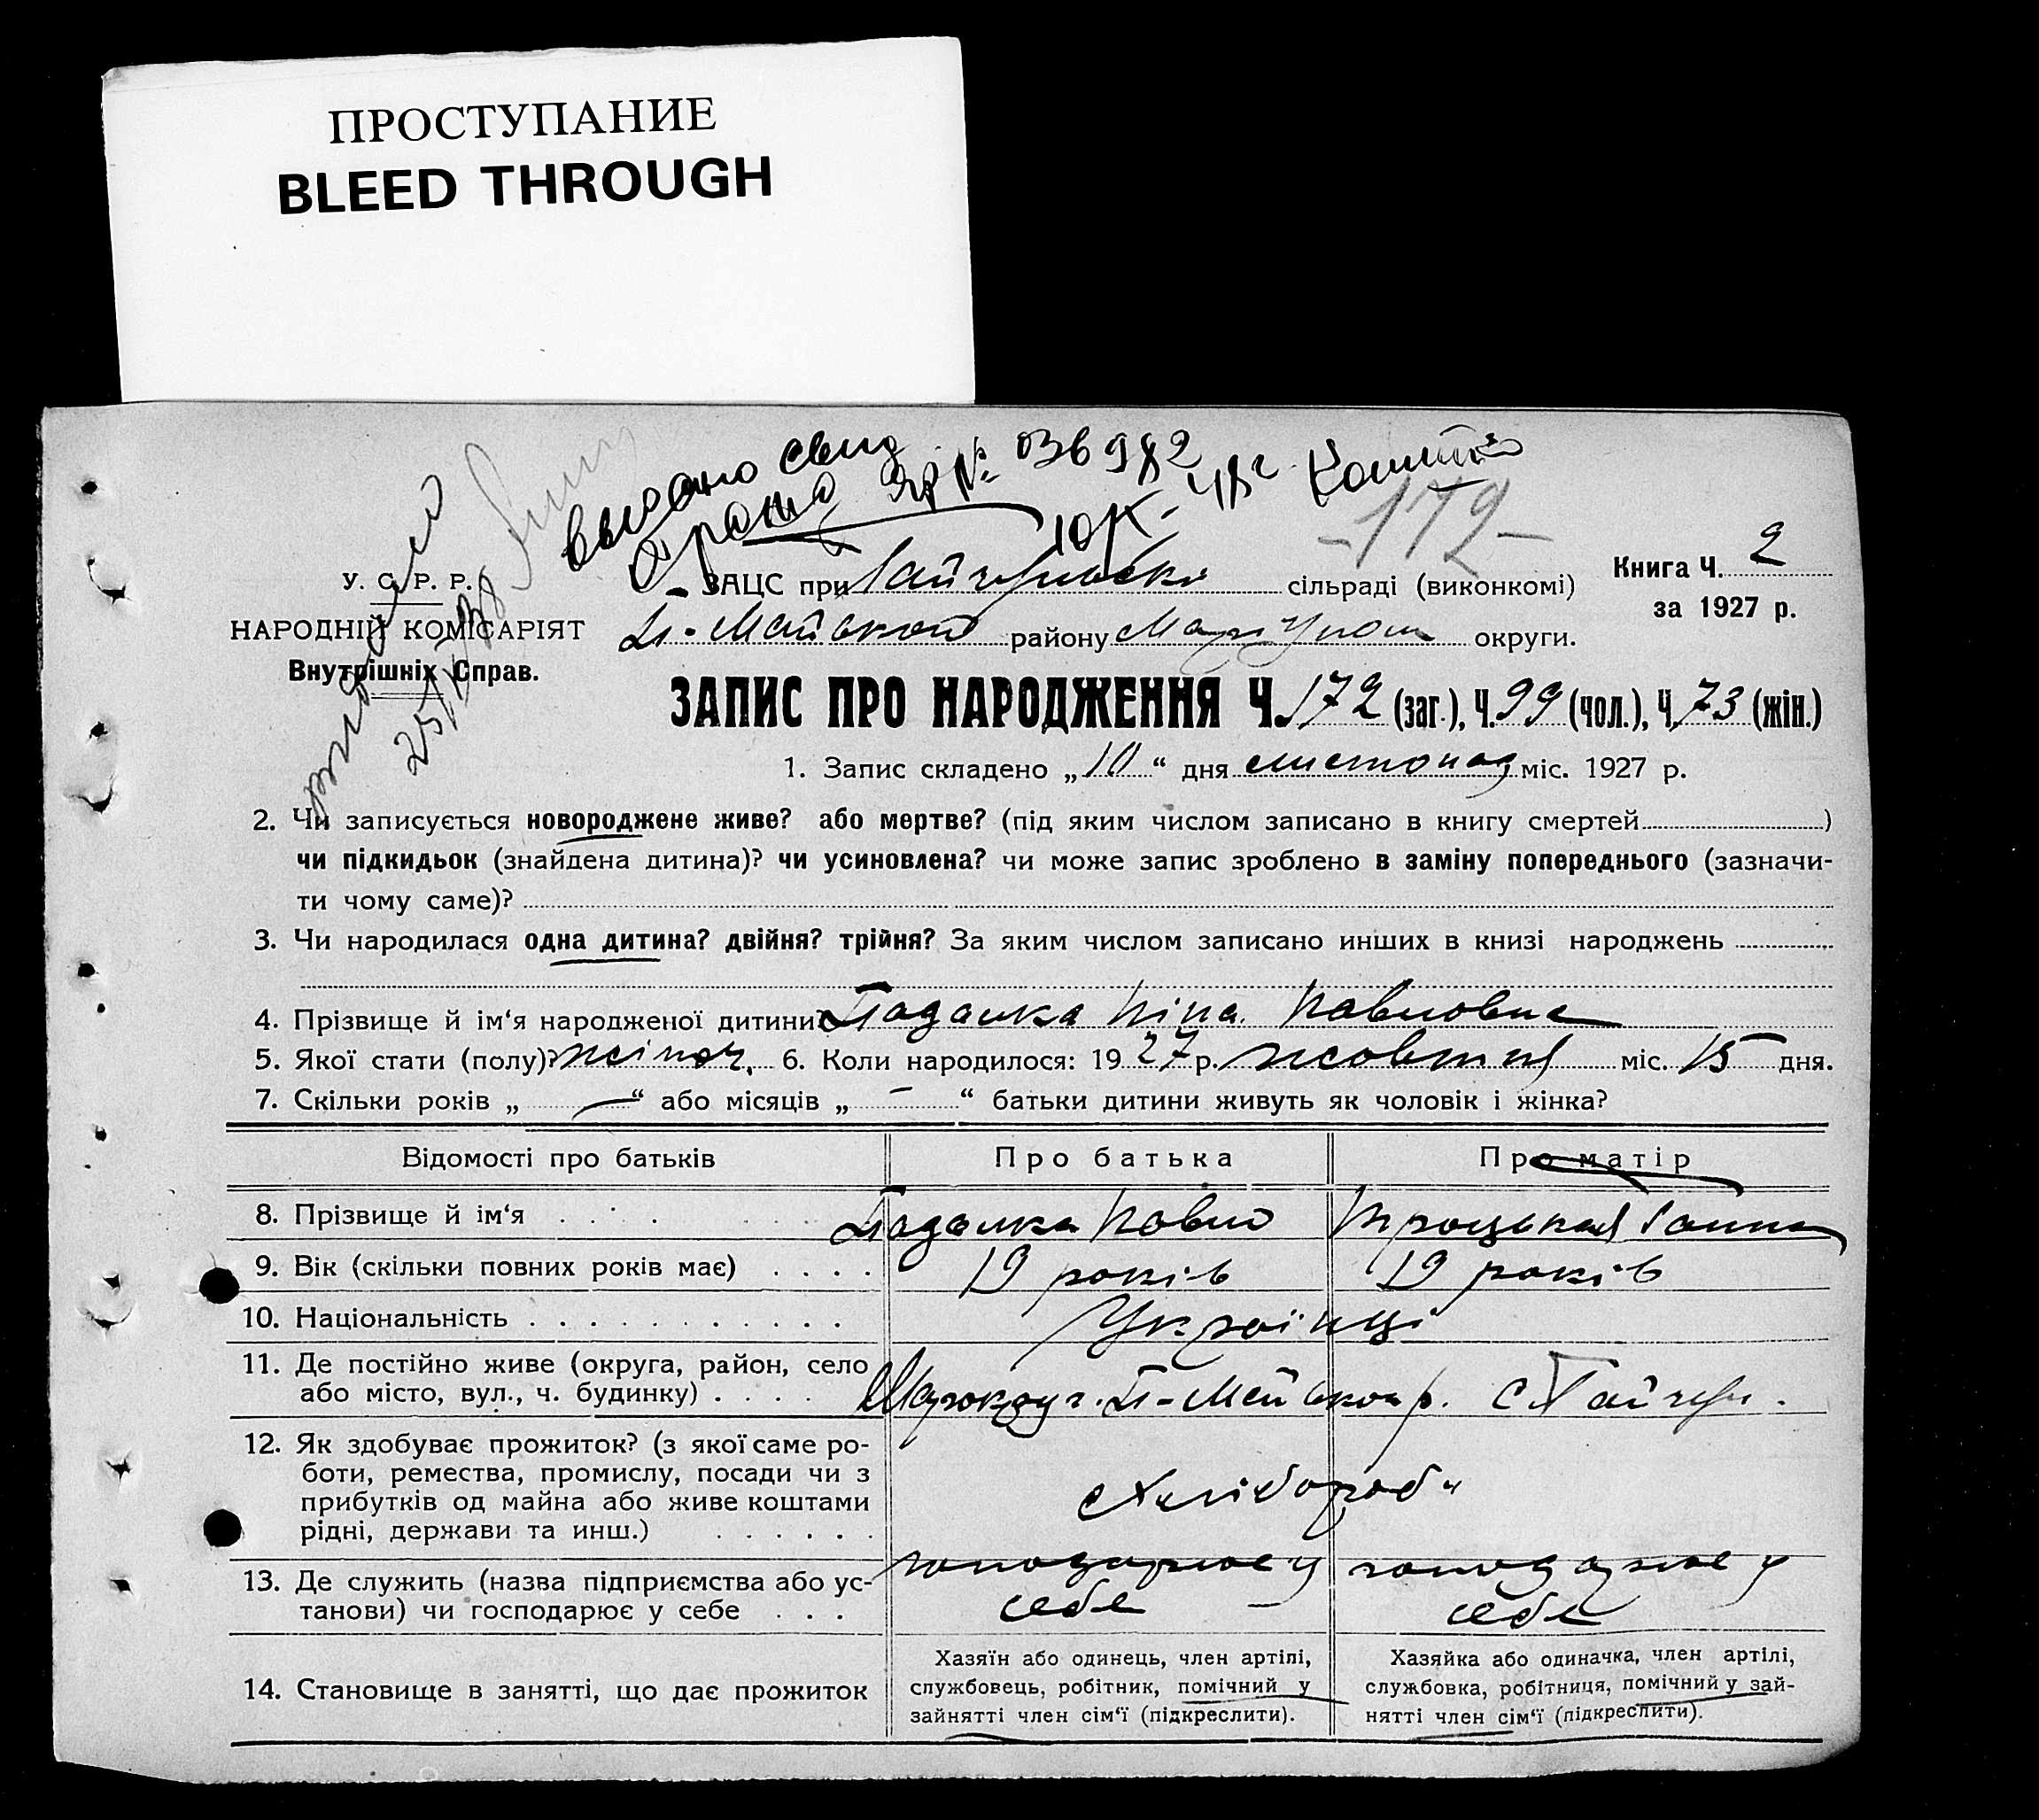 ПРОСТУПАНИЕ
BLEED THROUGH
Выдано свид
ЯР № 036982
10/X- 48 г.
-172-
У. С. Р. Р.
НАРОДНІЙ КОМІСАРІЯТ
Внутрішніх Справ.
ЗАЦС при Гайчурській сільраді (виконкомі)
П.-Майській району Маріупол округи.
Книга Ч. 2
за 1927 р.
ЗАПИС ПРО НАРОДЖЕННЯ Ч. 172 (заг.), Ч. 99 (чол.), Ч. 73 (жін.)
1. Запис складено „ 10 “ дня листопад міс. 1927 р.
2. Чи записується новороджене живе? або мертве? (під яким числом записано в книгу смертей )
чи підкидьок (знайдена дитина)? чи усиновлена? чи може запис зроблено в заміну попереднього (зазначи-
ти чому саме)?
3. Чи народилася одна дитина? двійня? трійня? За яким числом записано инших в книзі народжень
4. Прізвище й ім‘я народженої дитини? Падалка Ніна Павловна
5. Якої стати (полу)? жіноч. 6. Коли народилося: 1927 р. жовтня міс. 15 дня.
7. Скільки років „ — “ або місяців „ — “ батьки дитини живуть як чоловік і жінка?
Відомості про батьків Про батька Про матір
8. Прізвище й ім‘я Падалка Павло Троцькая Ганна
9. Вік (скільки повних років має) 19 років 19 років
10. Національність Українці
11. Де постійно живе (округа, район, село
або місто, вул., ч. будинку) П-Майськ р. с. Гайчур.
12. Як здобуває прожиток? (з якої саме ро-
боти, ремества, промислу, посади чи з
прибутків од майна або живе коштами
рідні, держави та инш.)
Хлібороби
13. Де служить (назва підприємства або ус-
танови) чи господарює у себе
господарює у себе
господарює у себе
14. Становище в занятті, що дає прожиток
Хазяїн або одинець, член артілі,
службовець, робітник, помічний у
зайнятті член сім‘ї (підкреслити).
Хазяйка або одиначка, член артілі,
службовка, робітниця, помічний у зай-
нятті член сім‘ї (підкреслити).